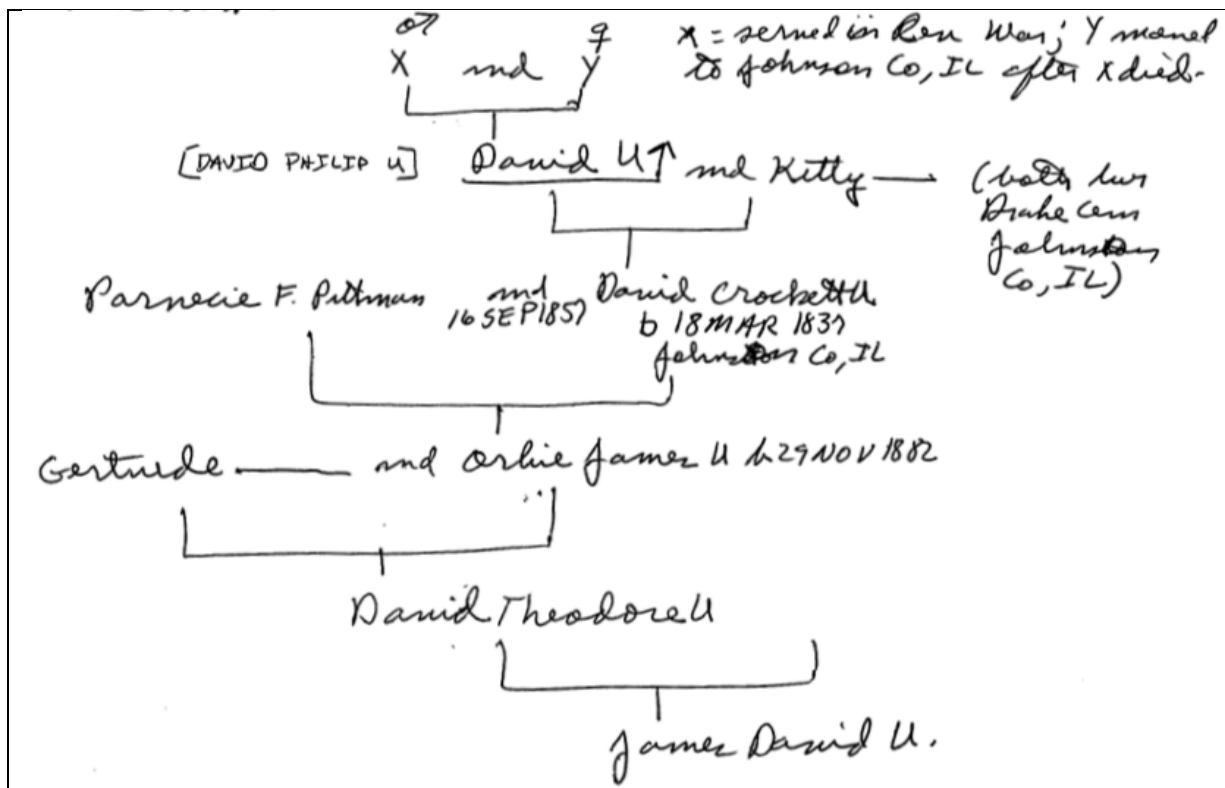 ♂ ♀
X md Y
X = served in Rev War; Y moved
to Johnson Co, IL after X died.
[DAVID PHILIP U] David U md Kitty — (both bur
Drake Cem
Johnson
Co, IL)
Parnecie F. Pittman md David Crockett U.
16 SEP 1857 b 18 MAR 1837
Johnson Co, IL
Gertrude —— md Orbie James U b 29 NOV 1882
David Theodore U
James David U.